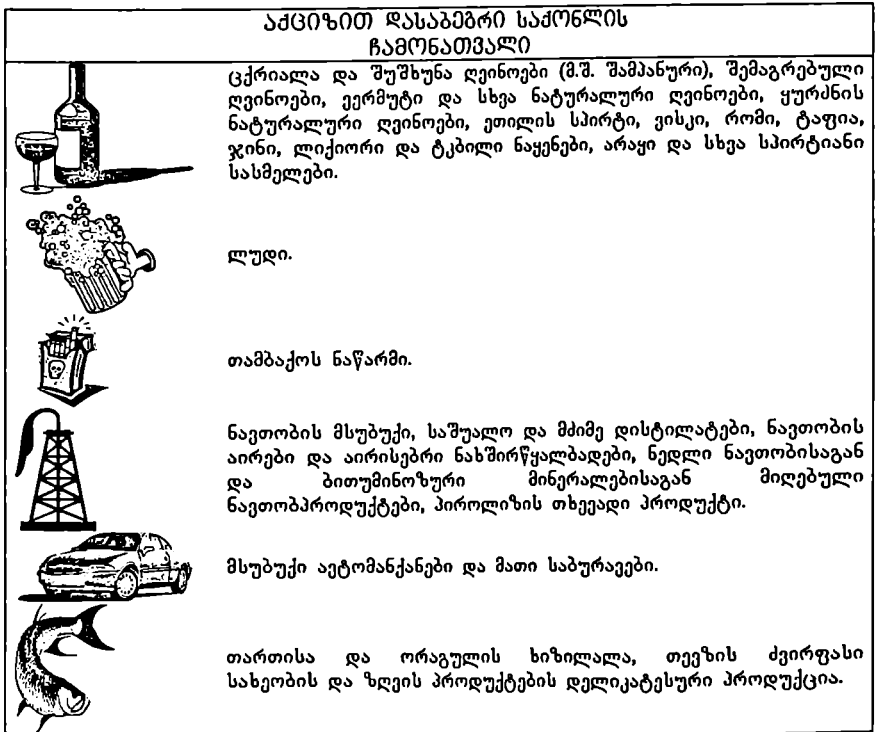 აქციზით დასაბეგრი საქონლის
ჩამონათვალი
ცქრიალა და შუშხუნა ღვინოები (მ.შ. შამპანური), შემაგრებული
ღვინოები, ვერმუტი და სხვა ნატურალური ღვინოები, ყურძნის
ნატურალური ღვინოები, ეთილის სპირტი, ვისკი, რომი, ტაფია,
ჯინი, ლიქიორი და ტკბილი ნაყენები, არაყი და სხვა სპირტიანი
სასმელები.
ლუდი.
თამბაქოს ნაწარმი.
ნავთობის მსუბუქი, საშუალო და მძიმე დისტილატები, ნავთობის
აირები და აირისებრი ნახშირწყალბადები, ნედლი ნავთობისაგან
და ბითუმინოზური მინერალებისაგან მიღებული
ნავთობპროდუქტები, პიროლიზის თხევადი პროდუქტი.
მსუბუქი ავტომანქანები და მათი საბურავები.
თართისა და ორაგულის ხიზილალა, თევზის ძვირფასი
სახეობის და ზღვის პროდუქტების დელიკატესური პროდუქცია.